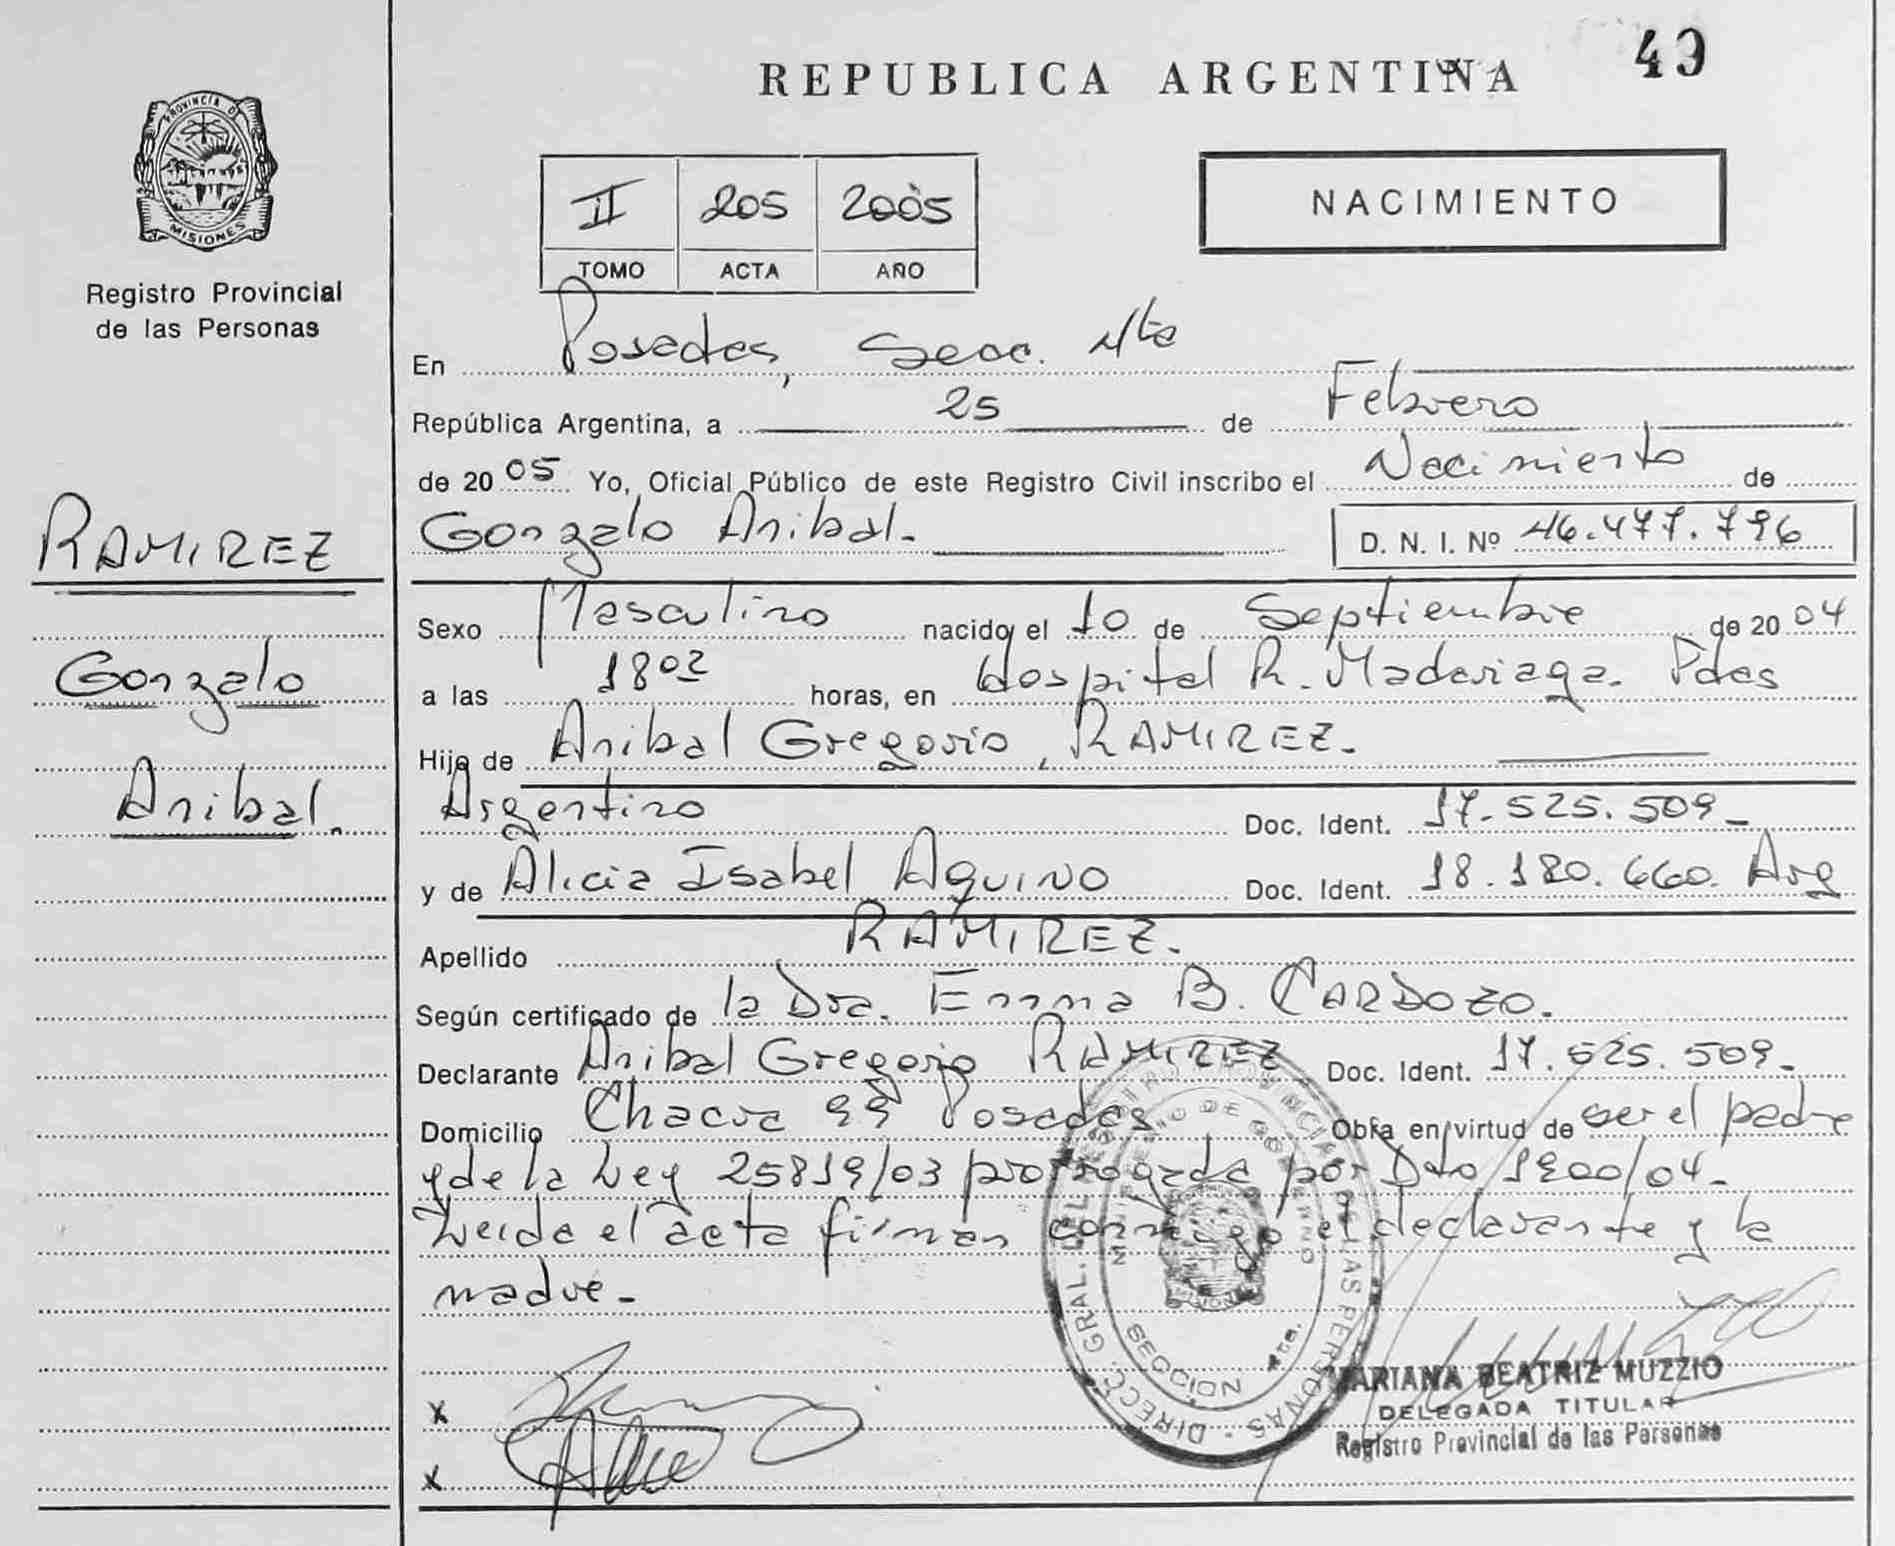 REPUBLICA ARGENTINA 49
PROVINCIA DE
MISIONES
Registro Provincial
de las Personas
II 205 2005
TOMO ACTA AÑO
NACIMIENTO
En Posadas, Secc. 4ta
República Argentina, a 25 de Febrero
de 20 05 Yo, Oficial Público de este Registro Civil inscribo el Nacimiento de
Gonzalo Anibal. D. N. I. Nº 46.477.796
RAMIREZ
Gonzalo
Anibal.
Sexo Masculino nacido el 10 de Septiembre de 20 04
a las 18 02 horas, en Hospital R. Madariaga. Pdas
Hijo de Anibal Gregorio, RAMIREZ.
Argentino Doc. Ident. 17.525.509_
y de Alicia Isabel AQUINO Doc. Ident. 18.180.660. Arg
Apellido RAMIREZ.
Según certificado de la Dra. Emma B. CARDOZO.
Declarante Anibal Gregorio RAMIREZ Doc. Ident. 17.525.509_
Domicilio Chacra 99 Posadas Obra en virtud de ser el padre
y de la Ley 25819/03 prorrogada por Dto 1900/04_
Leida el acta firman conmigo el declarante y la
madre_
DIRECC. GRAL. DEL REGISTRO PROVINCIAL DE LAS PERSONAS
MINISTERIO DE GOBIERNO
SECCION 4ta.
x
x
MARIANA BEATRIZ MUZZIO
DELEGADA TITULAR
Registro Provincial de las Personas